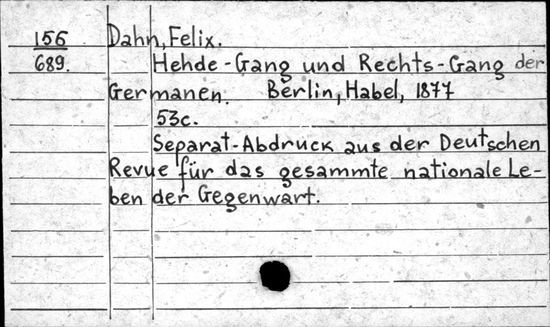 156 Dahn, Felix.
689. Hehde-Gang und Rechts-Gang der
Germanen. Berlin, Habel, 1877
53c.
Separat-Abdruck aus der Deutschen
Revue für das gesammte nationale Le-
ben der Gegenwart.